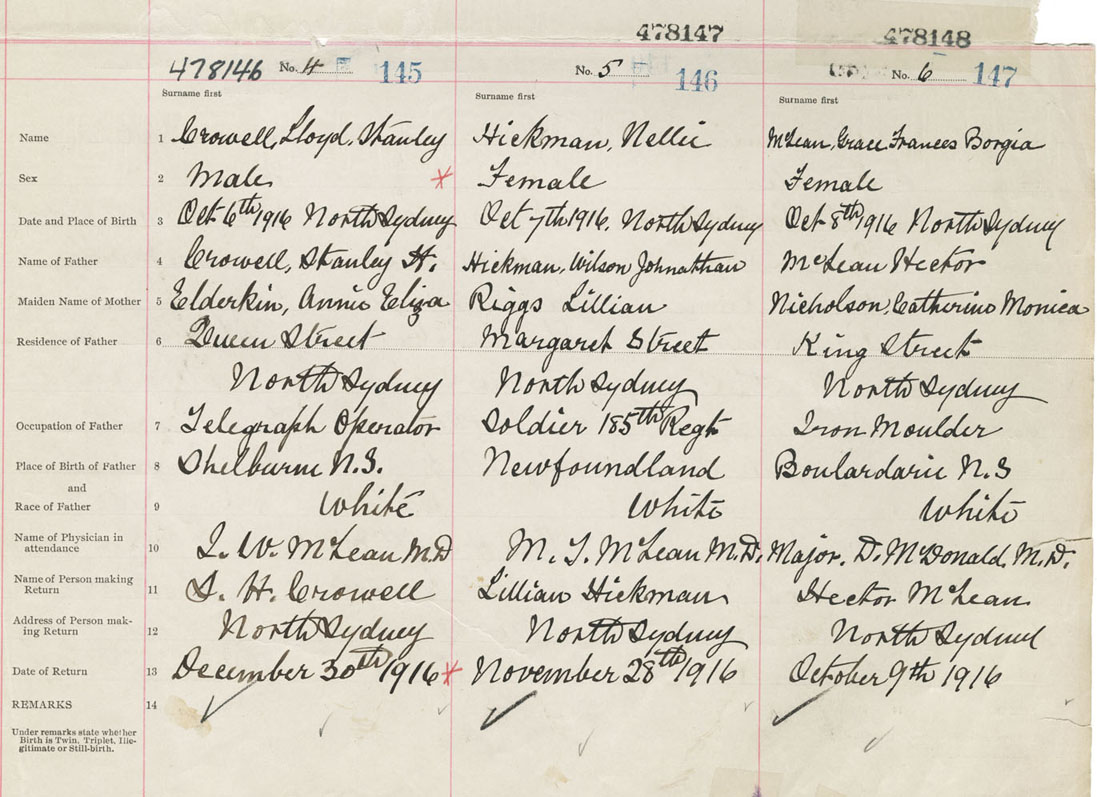 478147 478148
478146 No. 4 145 No. 5 146 No. 6 147
Surname first Surname first Surname first
Name 1 Crowell, Lloyd, Stanley Hickman, Nellie McLean, Grace Frances Borgia
Sex 2 Male Female Female
Date and Place of Birth 3 Oct 6th 1916 North Sydney Oct 7th 1916, North Sydney Oct 8th 1916 North Sydney
Name of Father 4 Crowell, Stanley H. Hickman, Wilson Johnathan McLean Hector
Maiden Name of Mother 5 Elderkin, Annie Eliza Riggs Lillian Nicholson, Catherine Monica
Residence of Father 6 Queen Street Margaret Street King Street
North Sydney North Sydney North Sydney
Occupation of Father 7 Telegraph Operator Soldier 185th Regt Iron Moulder
Place of Birth of Father 8 Shelburne N.S. Newfoundland Boulardarie N.S
and
Race of Father 9 White White White
Name of Physician in
attendance 10 L. W. McLean M.D M. T. McLean M.D. Major. D. McDonald. M.D.
Name of Person making
Return 11 S. H. Crowell Lillian Hickman Hector McLean
Address of Person mak-
ing Return 12 North Sydney North Sydney North Sydney
Date of Return 13 December 30th 1916 November 28th 1916 October 9th 1916
REMARKS 14
Under remarks state whether
Birth is Twin, Triplet, Ille-
gitimate or Still-birth.